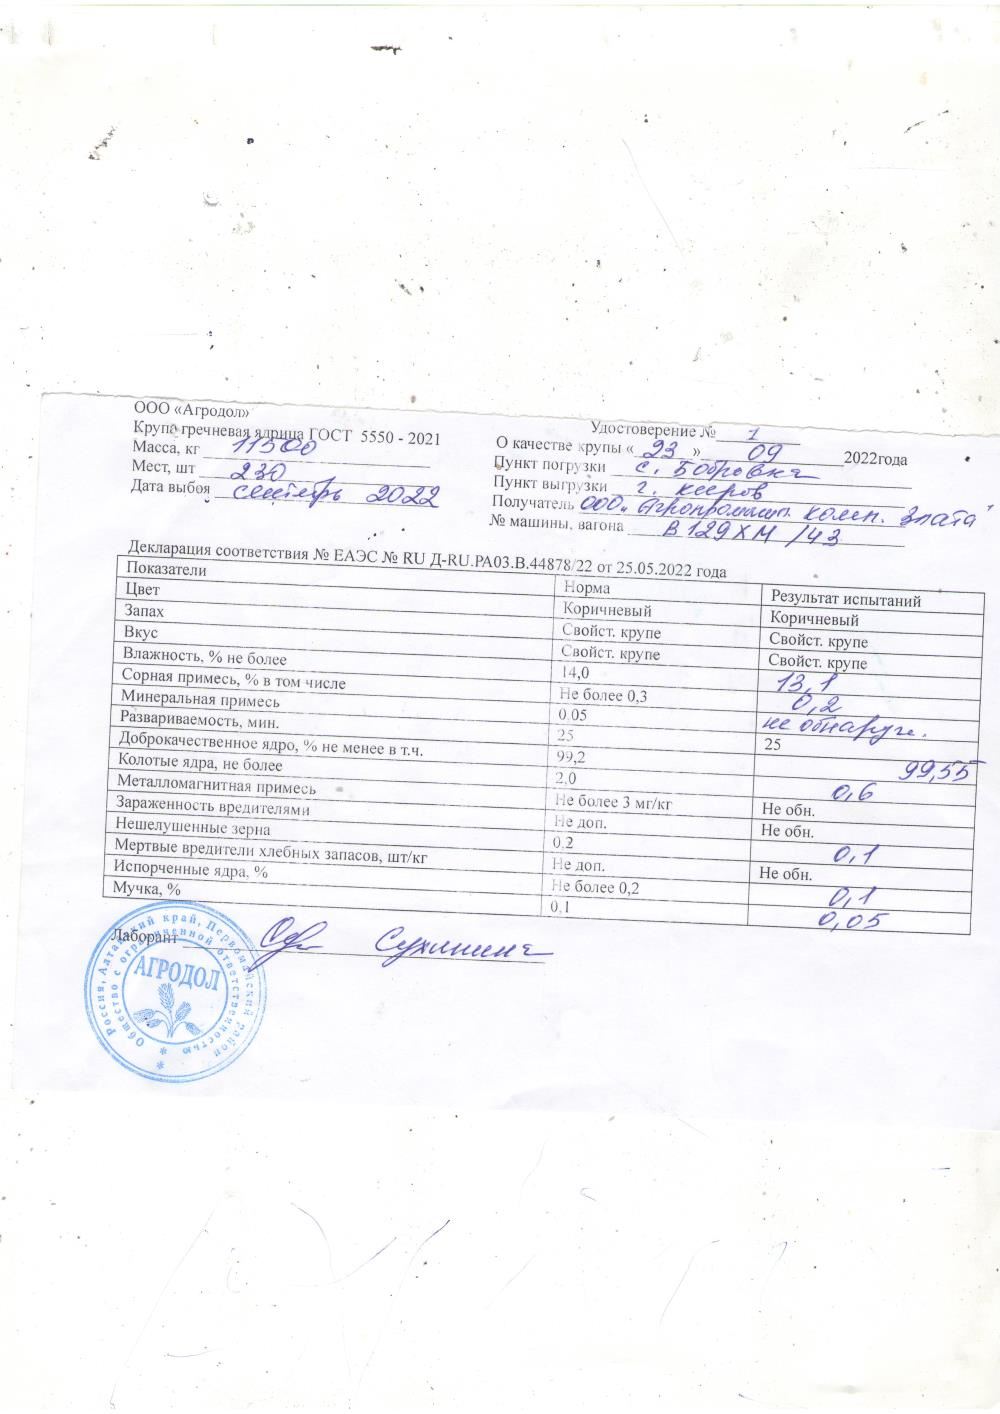 ООО «Агродол»
Крупа гречневая ядрица ГОСТ 5550 - 2021
Масса, кг 11500
Мест, шт 230
Дата выбоя сентябрь 2022
Удостоверение № 1
О качестве крупы « 23 » 09 2022года
Пункт погрузки с. Бобровка
Пункт выгрузки г. Киров
Получатель ООО "Агропромышл. комп. Злата"
№ машины, вагона В129ХМ /43
Декларация соответствия № ЕАЭС № RU Д-RU.РА03.В.44878/22 от 25.05.2022 года
Показатели Норма Результат испытаний
Цвет Коричневый Коричневый
Запах Свойст. крупе Свойст. крупе
Вкус Свойст. крупе Свойст. крупе
Влажность, % не более 14,0 13,1
Сорная примесь, % в том числе Не более 0,3 0,2
Минеральная примесь 0.05 не обнаруж.
Развариваемость, мин. 25 25
Доброкачественное ядро, % не менее в т.ч. 99,2 99,55
Колотые ядра, не более 2,0 0,6
Металломагнитная примесь Не более 3 мг/кг Не обн.
Зараженность вредителями Не доп. Не обн.
Нешелушенные зерна 0.2 0,1
Мертвые вредители хлебных запасов, шт/кг Не доп. Не обн.
Испорченные ядра, % Не более 0,2 0,1
Мучка, % 0,1 0,05
Лаборант Сухинина
Россия, Алтайский край, Первомайский район
Общество с ограниченной ответственностью
АГРОДОЛ